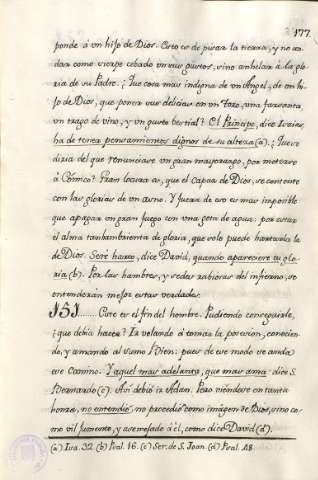 177.
ponde à un hijo de Dios. Esto es de pisar la tierra, y no an-
dar como sierpe cebado en sus gustos, sino anhelar à la glo-
ria de su Padre. ¿Que cosa mas indigna de un Angel, de un hi-
jo de Dios, que poner sus delicias en un
un trago de vino, y un gusto bestial? El Principe, dice Isaias,
ha de tener pensamientos dignos de su alteza (a). ¿Que se
diria del que renunciase un gran mayorazgo, por meterse
à Cómico? Gran locura es, que el capaz de Dios, se contente
con las glorias de un asno. Y fuera de eso es mas imposible
que apagar un gran fuego con una gota de agua: por estar
el alma tan hambrienta de gloria, que solo puede hartarla la
de Dios. Seré harto, dice David, quando apareciere tu glo-
ria (b). Por las hambres, y sedes rabiosas del infierno, se
entenderán mejor estas verdades.
151...... Este es el fin del hombre. Pudiendo conseguirle,
¿que debia hacer? Ir volando à tomar la posesion, conocien-
do, y amando al sumo Bien: pues de ese modo se anda
ese Camino. Y aquel mas adelanta, que mas ama: dice S.
Bernardo (c). Asi debió ir Adan. Pero viendose en tanta
honra, no entendió: no procedió como imágen de Dios, sino co-
mo vil jumento, y asemejado à él, como dice David (d).
(a) Isa. 32. (b) Psal. 16. (c) Ser. de S. Joan. (d) Psal. 48.